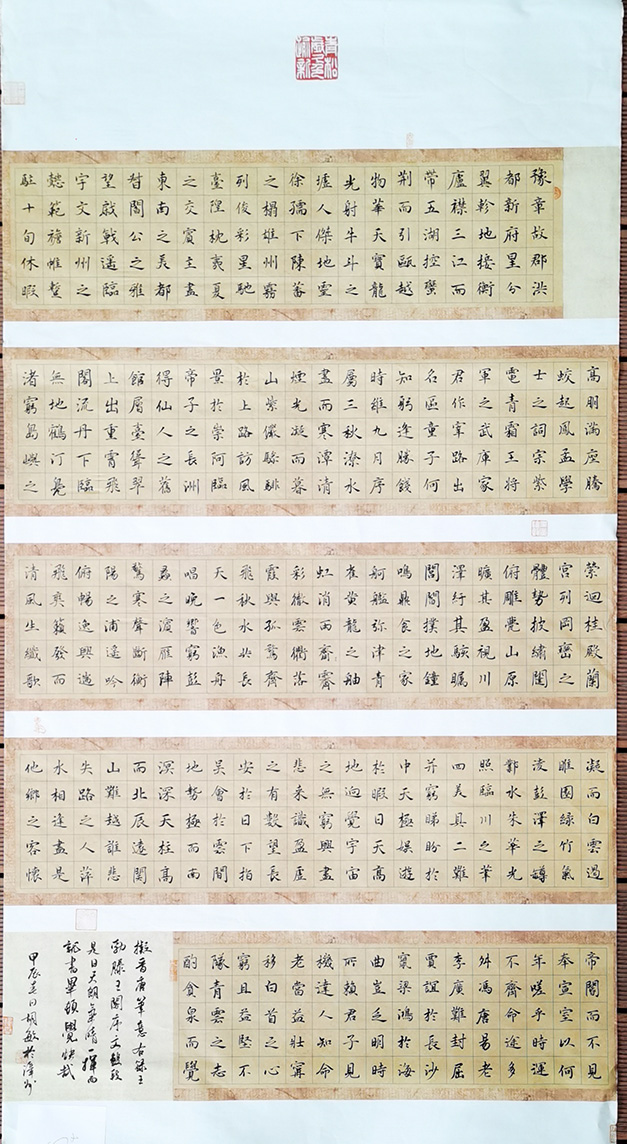 豫章故郡洪
都新府星分
翼軫地接衡
廬襟三江而
帶五湖控蠻
荆而引甌越
物華天寶龍
光射牛斗之
墟人傑地靈
徐孺下陳蕃
之榻雄州霧
列俊彩星馳
臺隍枕夷夏
之交賓主盡
東南之美都
督閻公之雅
望棨戟遥臨
宇文新州之
懿範襜帷暫
駐十旬休暇
高朋滿座騰
蛟起鳳孟學
士之詞宗紫
電青霜王將
軍之武庫家
君作宰路出
名區童子何
知躬逢勝餞
時維九月序
屬三秋潦水
盡而寒潭清
煙光凝而暮
山紫儼驂騑
於上路訪風
景於崇阿臨
帝子之長洲
得仙人之舊
館層臺聳翠
上出重霄飛
閣流丹下臨
無地鶴汀鳧
渚窮島嶼之
縈迴桂殿蘭
宮列岡巒之
體勢披繡闥
俯雕甍山原
曠其盈視川
澤紆其駭矚
閭閻撲地鐘
鳴鼎食之家
舸艦弥津青
雀黄龍之舳
虹消雨齋霽
彩徹雲衢落
霞與孤鶩齊
飛秋水共長
天一色漁舟
唱晚響窮彭
蠡之濱雁陣
驚寒聲斷衡
陽之浦遥吟
俯暢逸興遄
飛爽籟發而
清風生纖歌
凝而白雲遏
睢園綠竹氣
淩彭澤之罇
鄴水朱華光
照臨川之筆
四美具二難
并窮睇眄於
中天極娱遊
於暇日天高
地迥覺宇宙
之無窮興盡
悲來識盈虛
之有數望長
安於日下指
吳會於雲間
地勢極而南
溟深天柱高
而北辰遠關
山難越誰悲
失路之人萍
水相逢盡是
他鄉之客懷
帝閽而不見
奉宣室以何
年嗟乎時運
不齊命途多
舛馮唐易老
李廣難封屈
賈誼於長沙
竄梁鴻於海
曲豈乏明時
所賴君子見
機達人知命
老當益壯寧
移白首之心
窮且益堅不
墜青雲之志
酌貪泉而覺
擬晉唐筆意右録王
勃滕王閣序文數段
是日天朗氣晴一揮而
就書畢頓覺快哉
甲辰夏日胡敏於漳州